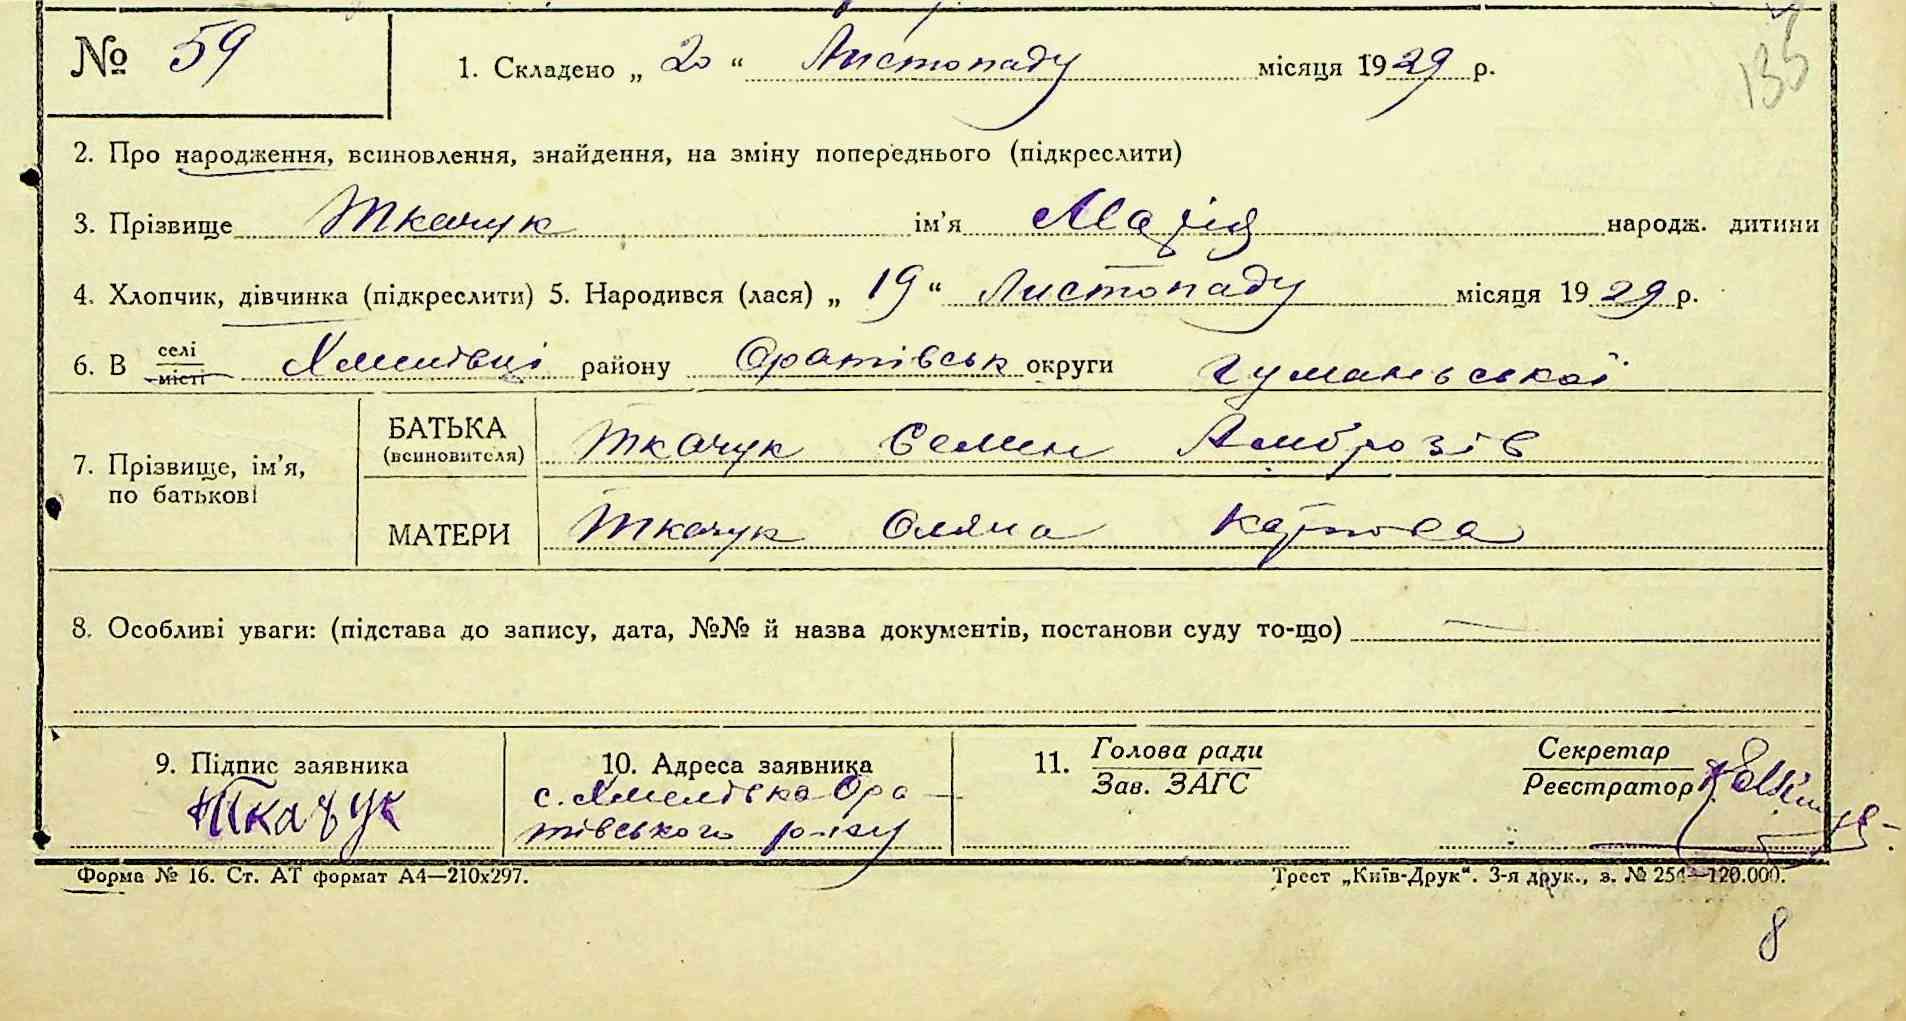 135
№ 59
1. Складено „ 20 “ Листопаду місяця 1929 р.
2. Про народження, всиновлення, знайдення, на зміну попереднього (підкреслити)
3. Прізвище Ткачук ім’я Марія народж. дитини
4. Хлопчик, дівчинка (підкреслити) 5. Народився (лася) „ 19 “ Листопаду місяця 1929 р.
6. В селі місті Хмелівці району Оратівськ округи Гуманьської
7. Прізвище, ім’я, по батькові
БАТЬКА (всиновителя) Ткачук Семен Амброзів
МАТЕРИ Ткачук Оляна Карпова
8. Особливі уваги: (підстава до запису, дата, №№ й назва документів, постанови суду то-що) —
9. Підпис заявника
Ткачук
10. Адреса заявника
с. Хмелівка Ора-
тівського р-ну
11. Голова ради
Зав. ЗАГС
Секретар
Реєстратор
Форма № 16. Ст. АТ формат А4—210х297.
Трест „Київ-Друк“. 3-я друк., з. № 254—120.000.
8